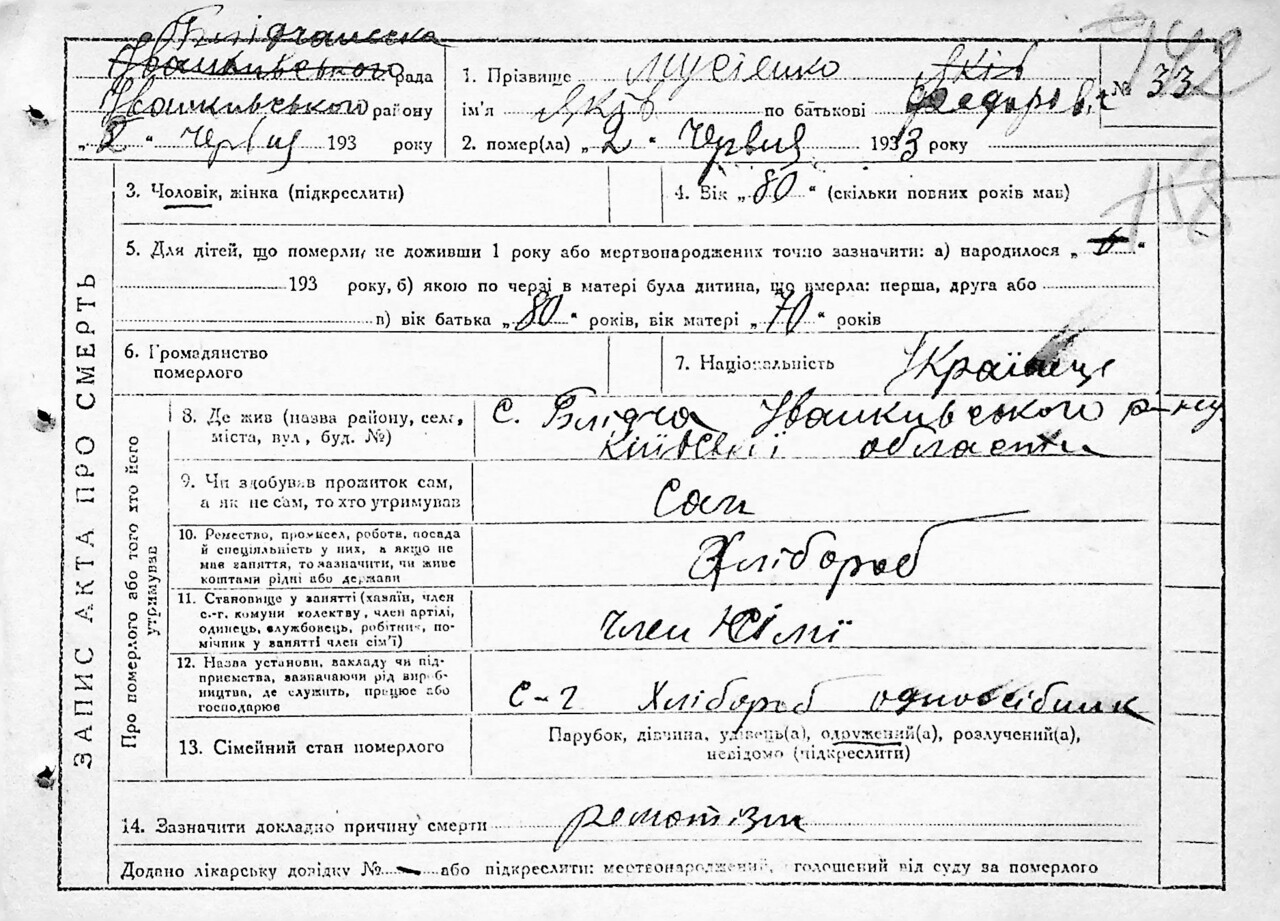 Блідчанська
Іванківського рада
Іванківського району
„ 2 “ Червня 193 року
1. Прізвище Мусієнко Яків
ім'я Яків по батькові Федоров.
2. помер(ла) „ 2 “ Червня 1933 року
№ 33
142
158
ЗАПИС АКТА ПРО СМЕРТЬ
3. Чоловік, жінка (підкреслити)
4. Вік „ 80 “ (скільки повних років мав)
5. Для дітей, що померли, не доживши 1 року або мертвонароджених точно зазначити: а) народилося „ “
193 року, б) якою по черзі в матері була дитина, що вмерла: перша, друга або
в) вік батька „ 80 “ років, вік матері „ 70 “ років
6. Громадянство
померлого
7. Національність Українец
Про померлого або того хто його
утримував
8. Де жив (назва району, села,
міста, вул, буд. №)
с. Блідча Іванківського р-ну
Київської області
9. Чи здобував прожиток сам,
а як не сам, то хто утримував
Сам
10. Ремество, промисел, робота, посада
й спеціяльність у них, а якщо не
мав заняття, то зазначити, чи живе
коштами рідні або держави
Хлібороб
11. Становище у занятті (хазяїн, член
с.-г. комуни колективу, член артілі,
одинець, службовець, робітник, по-
мічник у занятті член сім'ї)
член сімї
12. Назва установи, закладу чи під-
приємства, зазначаючи рід вироб-
ництва, де служить, працює або
господарює
с-г Хлібороб одноосібник
13. Сімейний стан померлого
Парубок, дівчина, удівець(а), одружений(а), розлучений(а),
невідомо (підкреслити)
14. Зазначити докладно причину смерти ремотізм
Додано лікарську довідку № або підкреслити: мертвонароджений, оголошений від суду за померлого